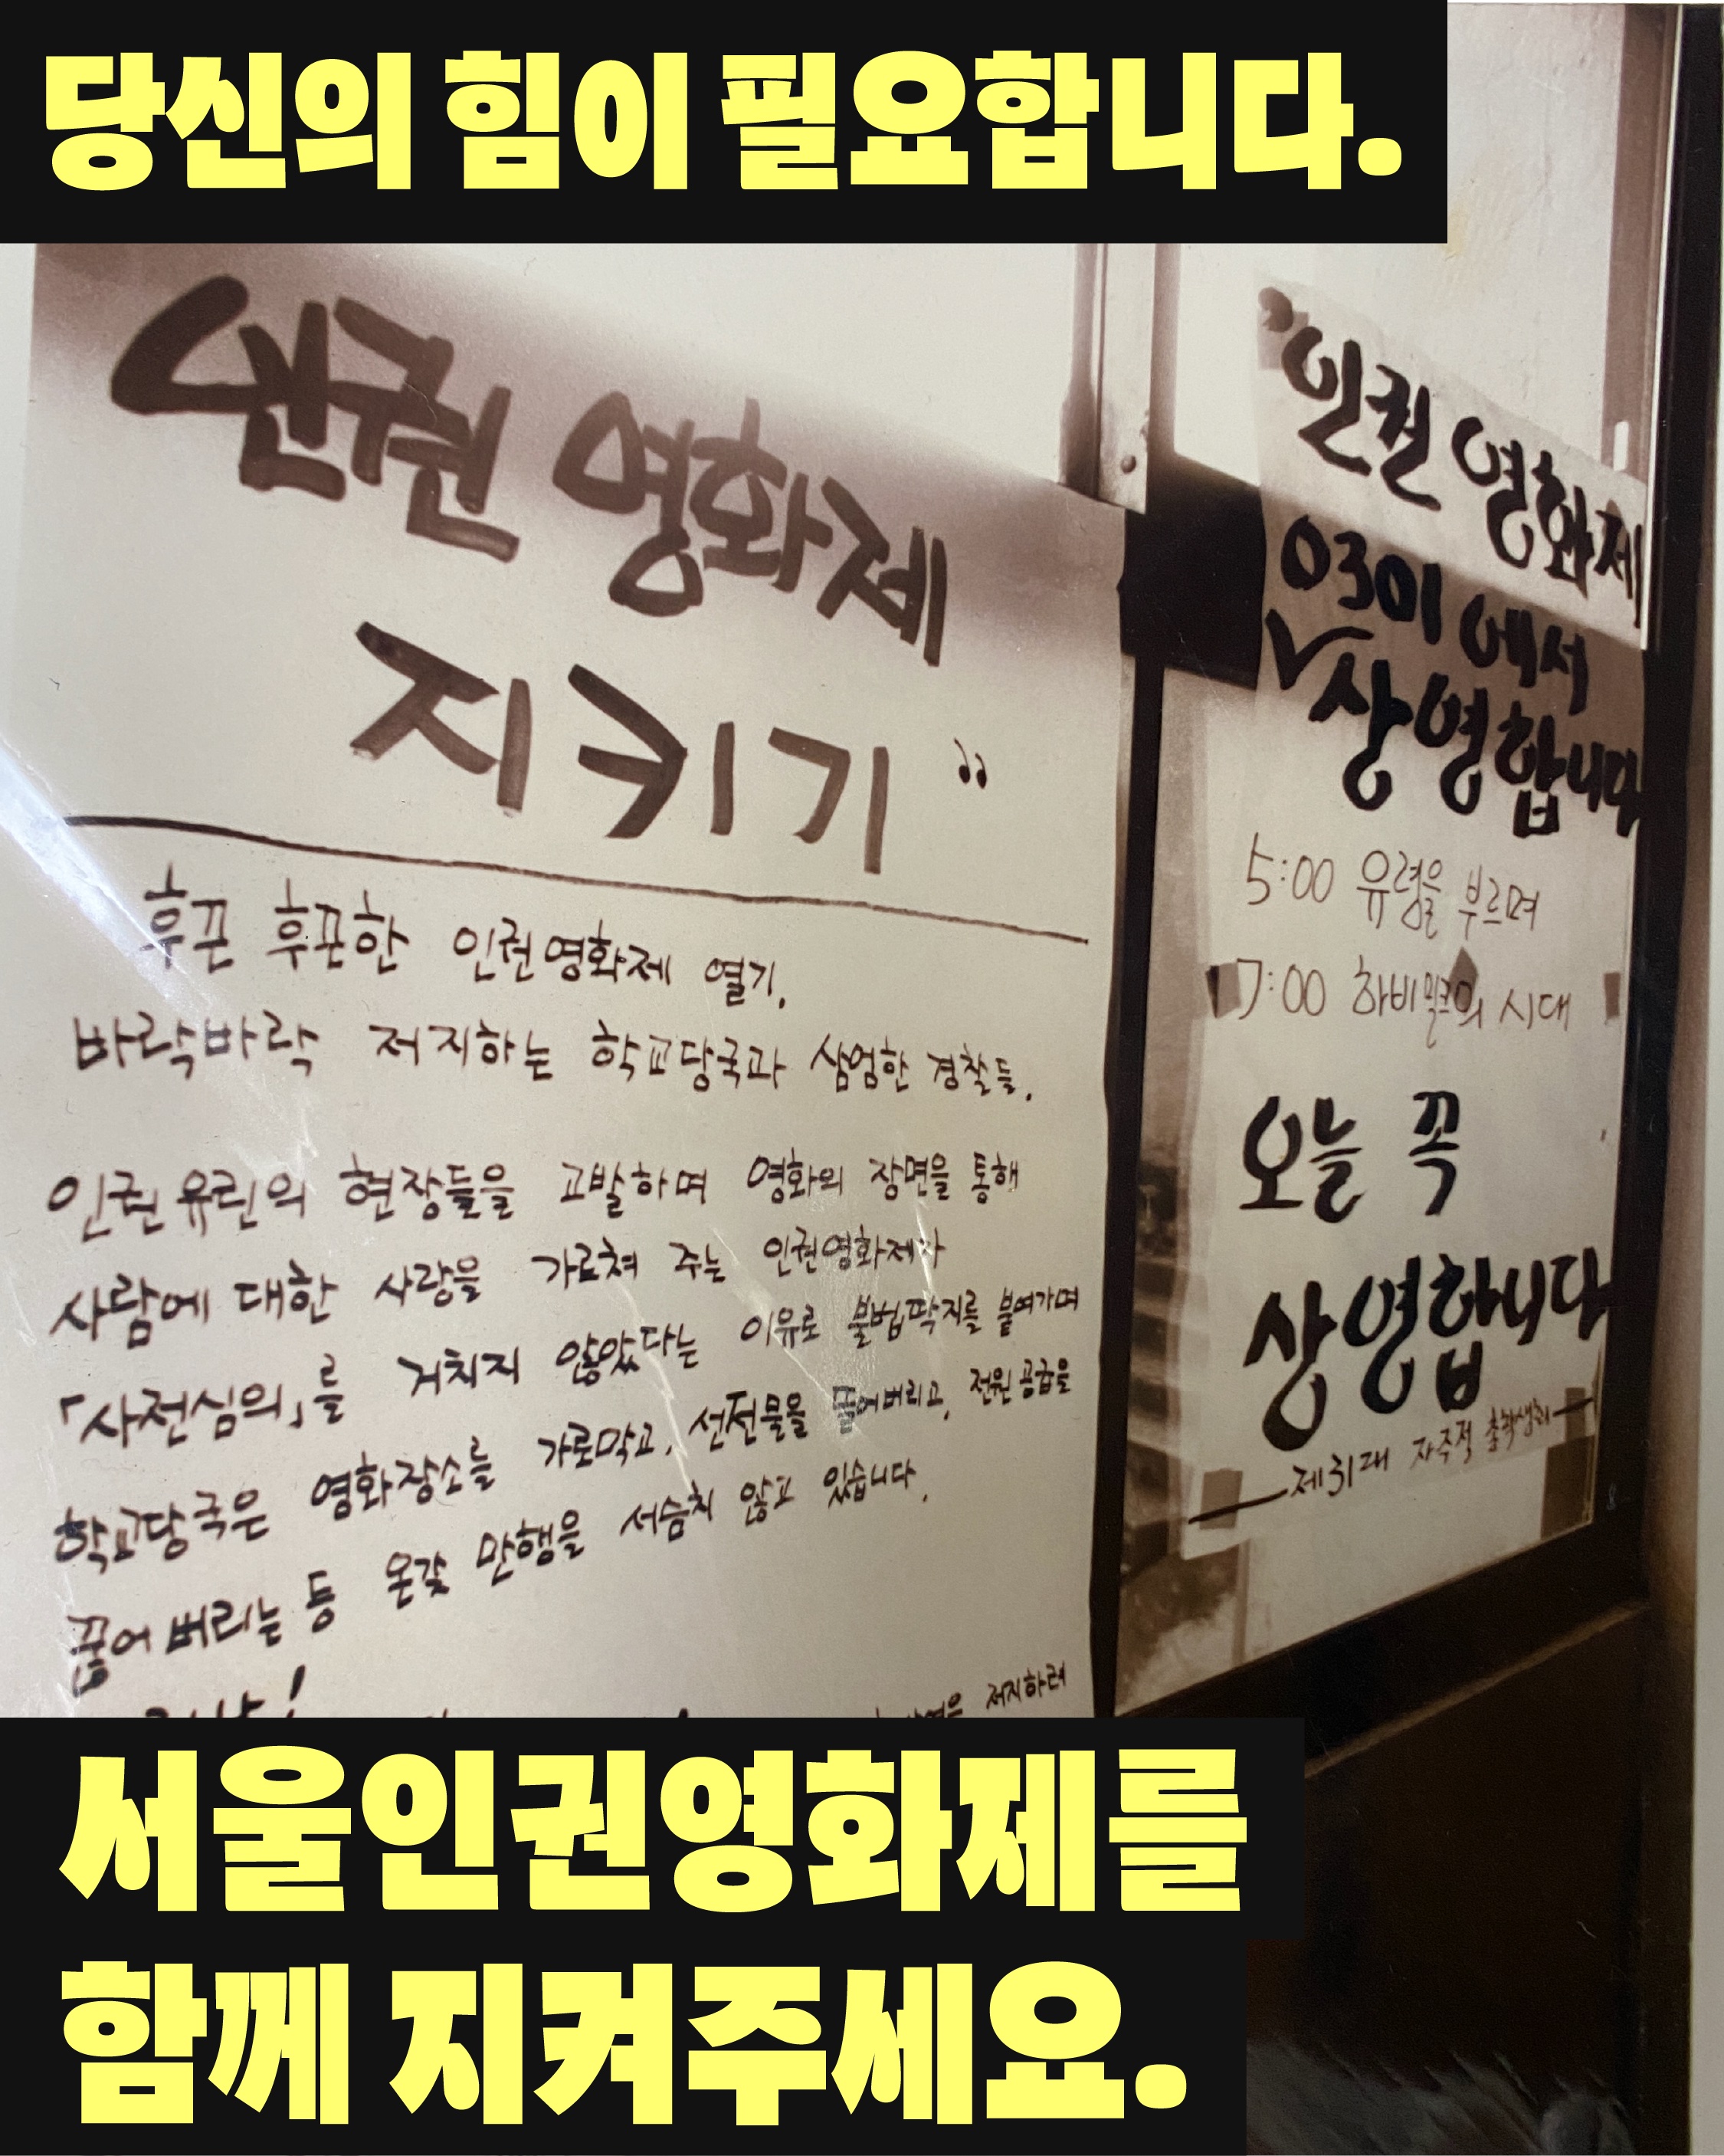 당신의 힘이 필요합니다.
인권 영화제
지키기 "
후끈 후끈한 인권영화제 열기.
바락바락 저지하는 학교당국과 삼엄한 경찰들.
인권유린의 현장들을 고발하며 영화의 장면을 통해
사람에 대한 사랑을 가르쳐 주는 인권영화제가
「사전심의」를 거치지 않았다는 이유로 불법딱지를 붙여가며
학교당국은 영화장소를 가로막고, 선전물을 뜯어버리고, 전원 공급을
끊어 버리는 등 온갖 만행을 서슴치 않고 있습니다.
저지하려
"인권 영화제
0301에서
상영합니다
5:00 유령을 부르며
7:00 하비밀크의 시대
오늘 꼭
상영합니다
제31대 자주적 총학생회
서울인권영화제를
함께 지켜주세요.